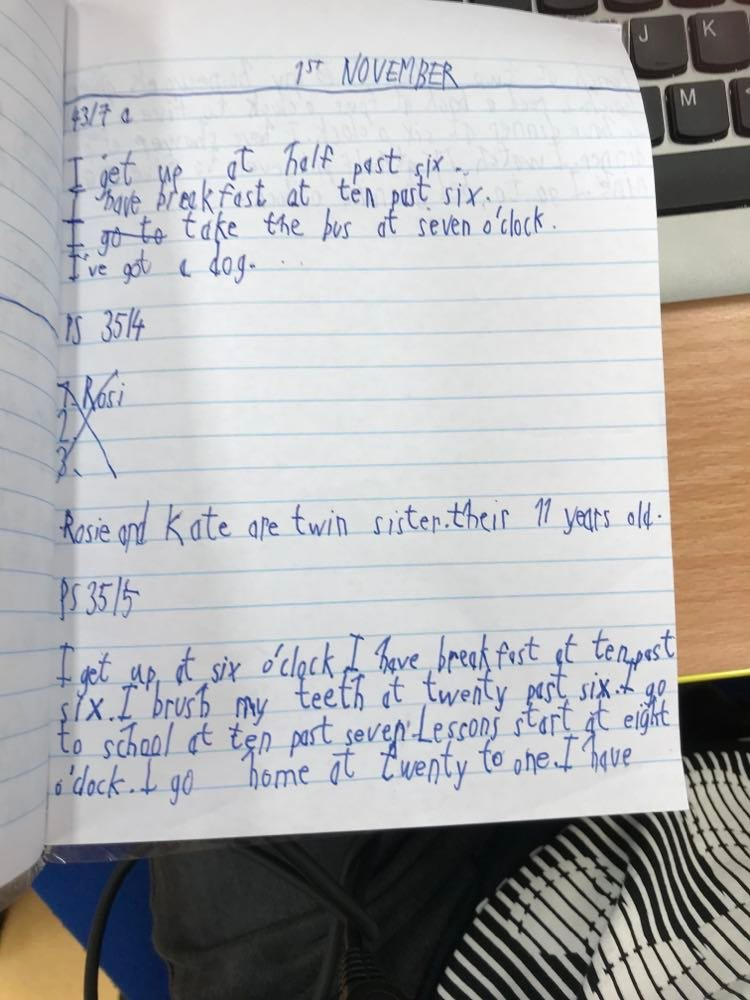 1ST NOVEMBER
43/7 a
I get up at half past six.
I have breakfast at ten past six.
I go to take the bus at seven o'clock.
I've got a dog.
PS 35/4
1. Rosi
2.
3.
Rosie and Kate are twin sister.their 11 years old.
PS 35/5
I get up at six o'clock I have breakfast at ten past
six.I brush my teeth at twenty past six.I go
to school at ten past seven.Lessons start at eight
o'clock.I go home at twenty to one.I have
J K
M